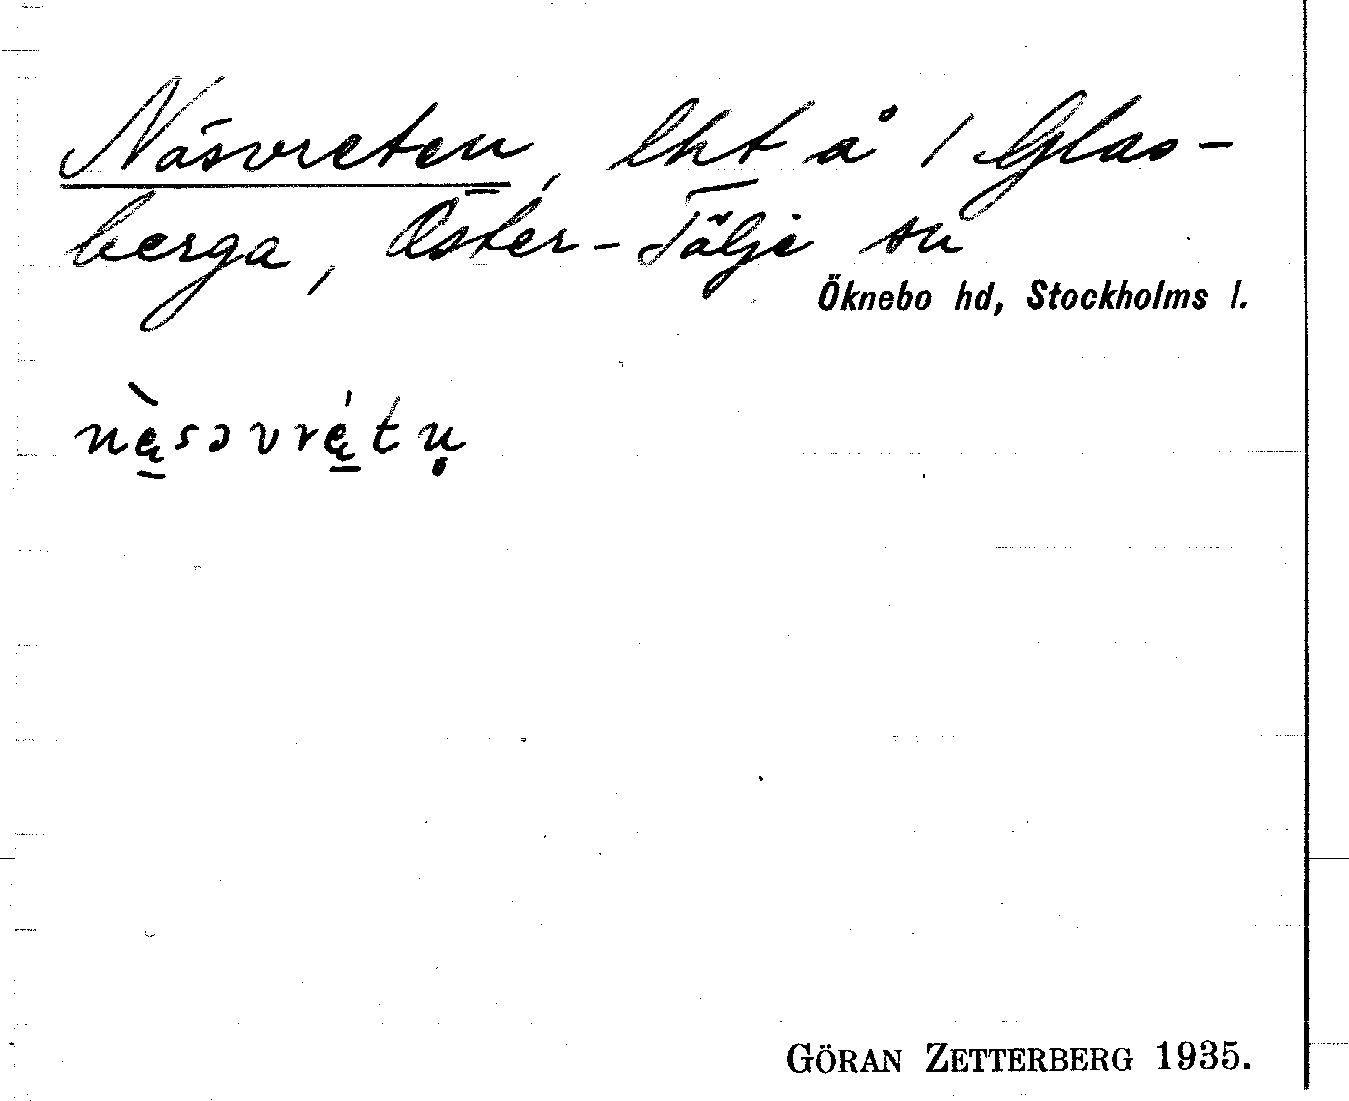 Näsvreten, lht å 1 Glas-
berga, Öster-Tälje sn
Öknebo hd, Stockholms l.
GÖRAN ZETTERBERG 1935.